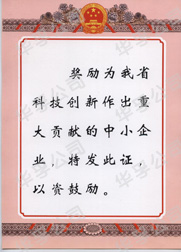 奖励为我省
科技创新作出重
大贡献的中小企
业，特发此证，
以资鼓励。